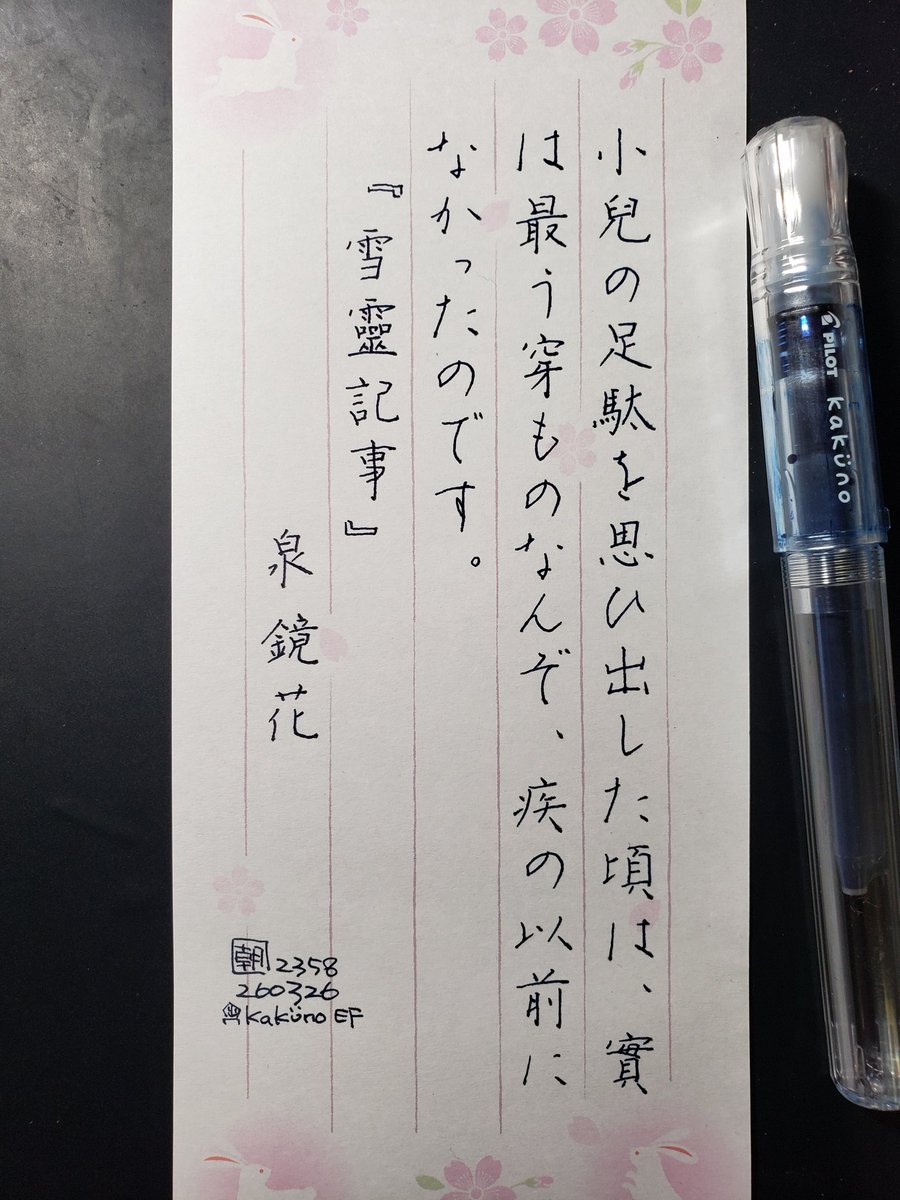 小兒の足駄を思ひ出した頃は、實
は最う穿ものなんぞ、疾の以前に
なかったのです。
『雪靈記事』
泉 鏡花
朝 2358
260326
kaküno EF
PILOT kaküno